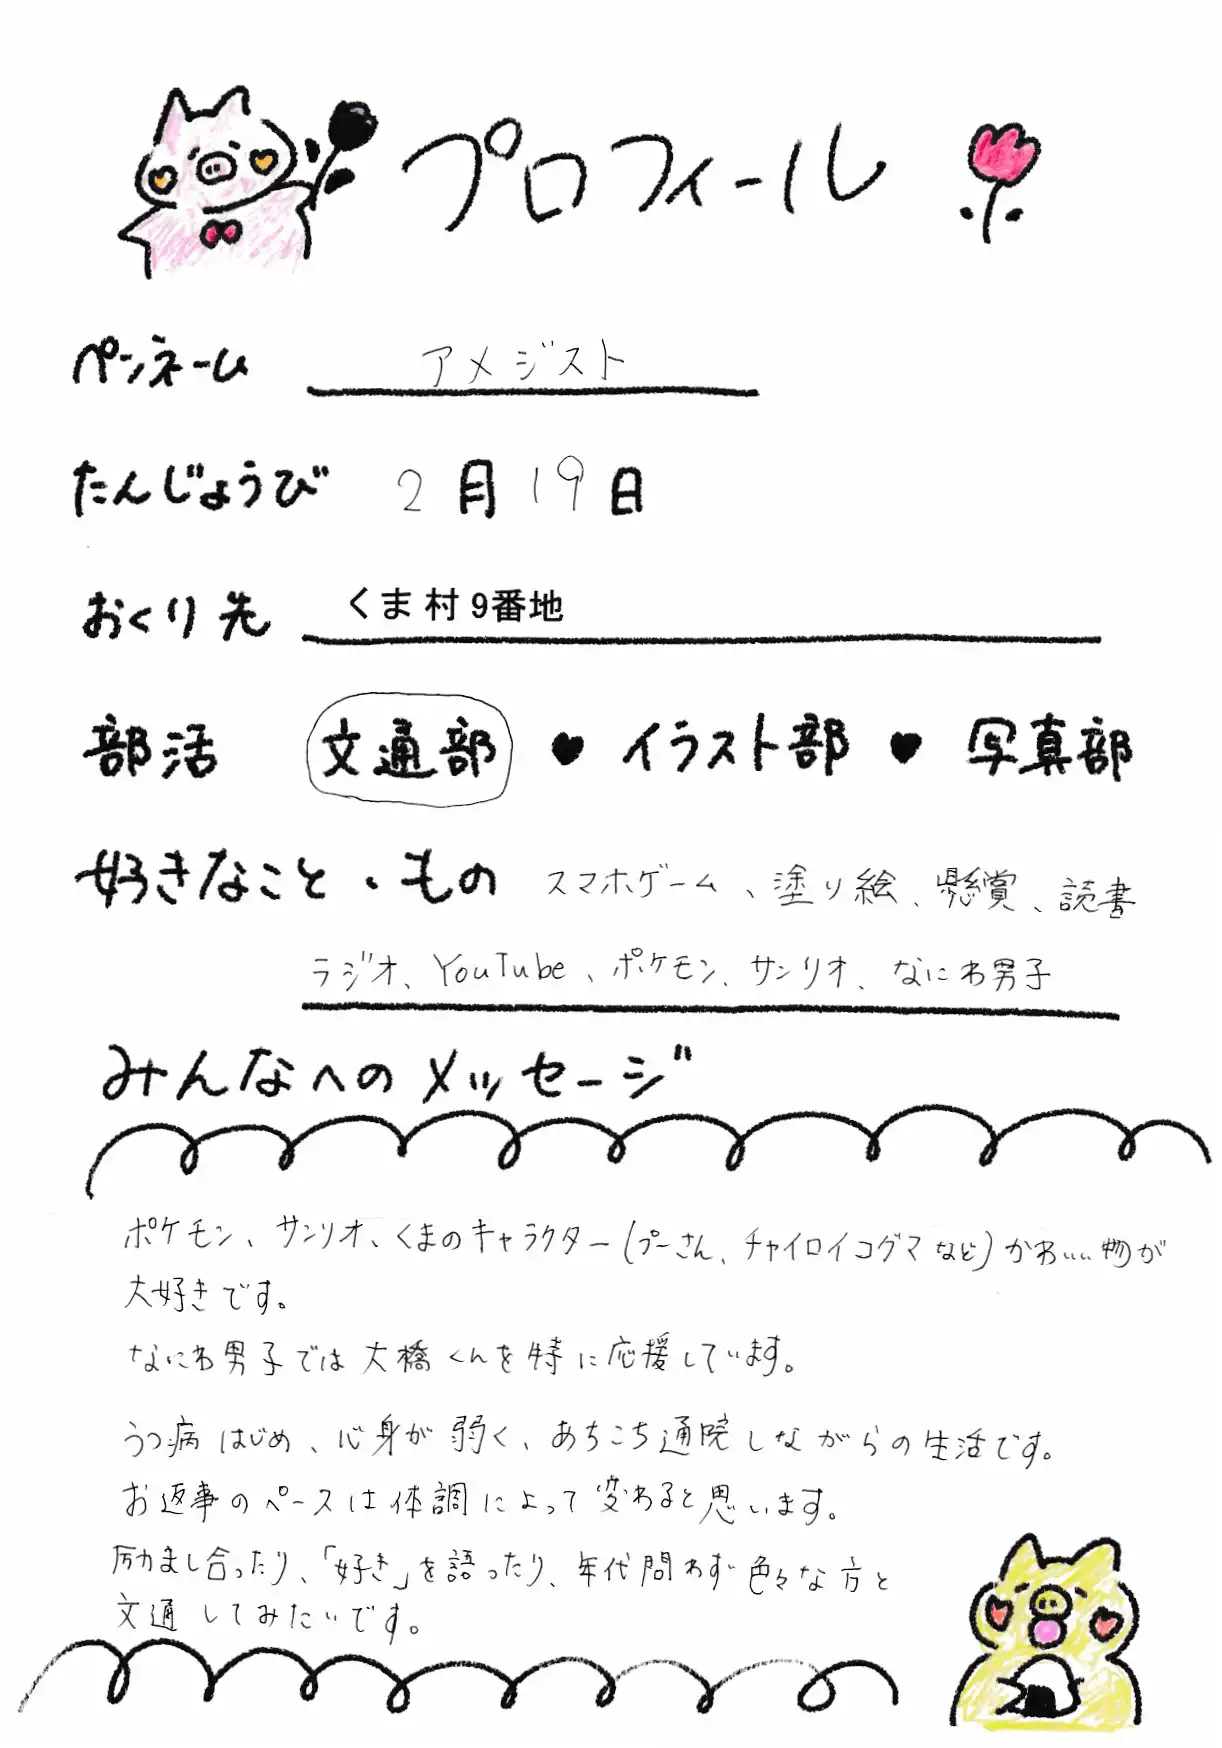 プロフィール
ペンネーム アメジスト
たんじょうび 2月19日
おくり先 くま村9番地
部活 文通部 ♥ イラスト部 ♥ 写真部
好きなこと・もの スマホゲーム、塗り絵、懸賞、読書
ラジオ、YouTube、ポケモン、サンリオ、なにわ男子
みんなへのメッセージ
ポケモン、サンリオ、くまのキャラクター(プーさん、チャイロイコグマなど)かわいい物が
大好きです。
なにわ男子では大橋くんを特に応援しています。
うつ病はじめ、心身が弱く、あちこち通院しながらの生活です。
お返事のペースは体調によって変わると思います。
励まし合ったり、「好き」を語ったり、年代問わず色々な方と
文通してみたいです。